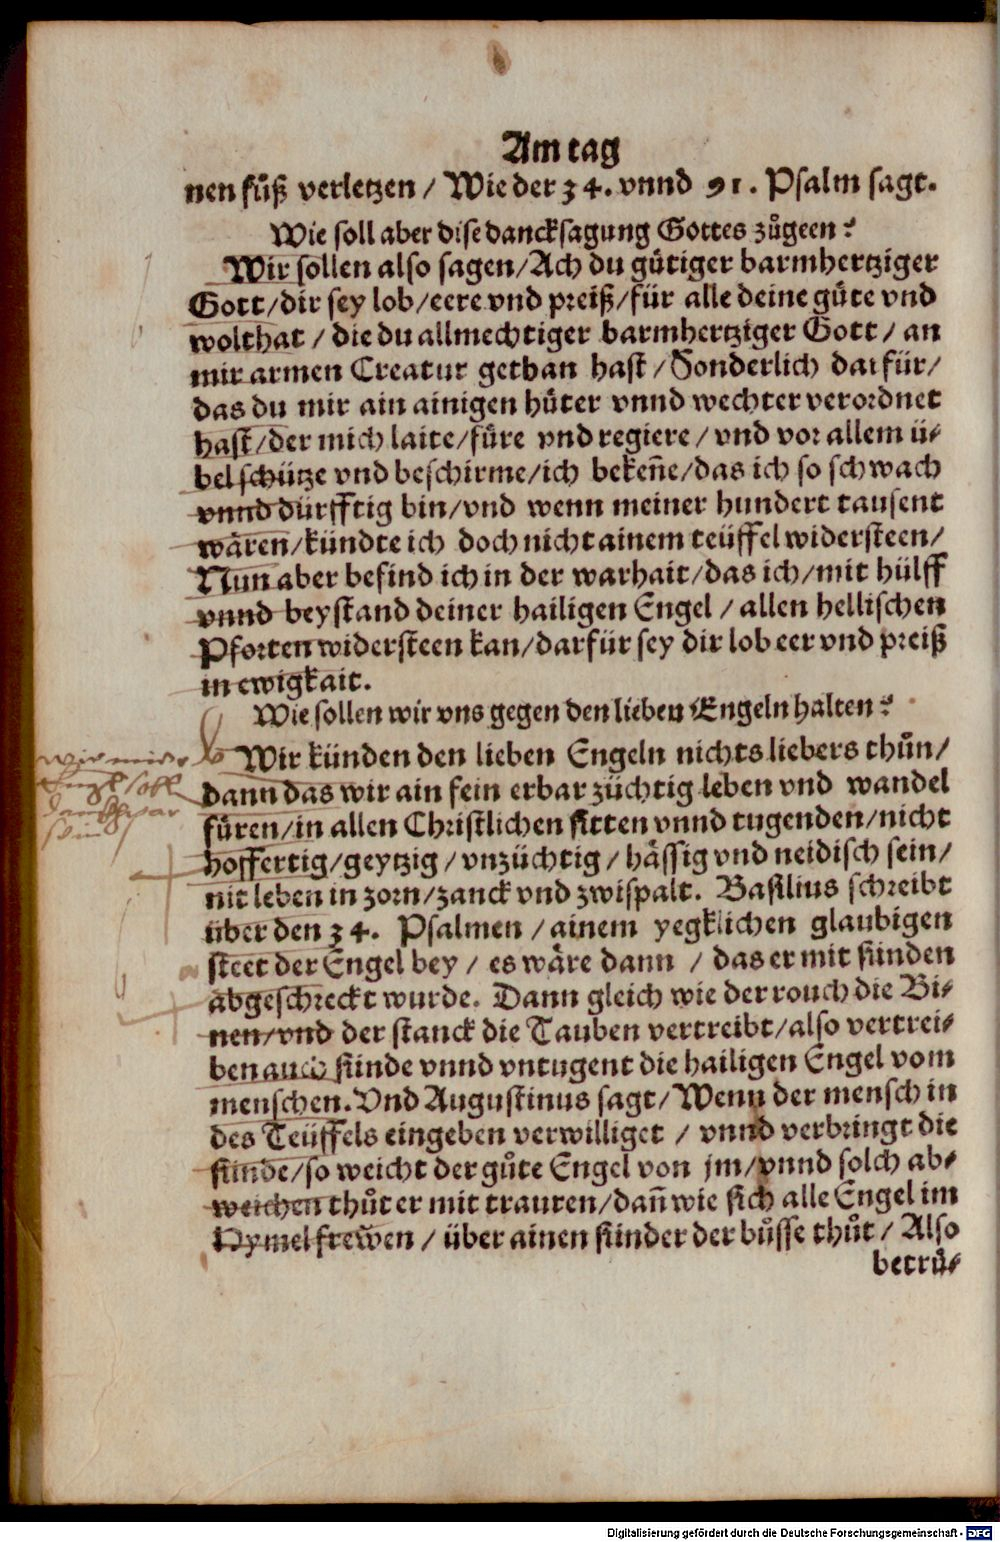 Am tag
nen fůß verletzen / Wie der 34. vnnd 91. Psalm sagt.
Wie soll aber dise dancksagung Gottes zůgeen?
Wir sollen also sagen/Ach du gůtiger barmhertziger
Gott/dir sey lob/eere vnd preiß/für alle deine gůte vnd
wolthat / die du allmechtiger barmhertziger Gott / an
mir armen Creatur gethan hast / Sonderlich darfür/
das du mir ain ainigen hůter vnnd wechter verordnet
hast/der mich laite/fůre vnd regiere / vnd vor allem ü-
bel schütze vnd beschirme/ich bekeñe/das ich so schwach
vnnd dürfftig bin/vnd wenn meiner hundert tausent
wären/kündte ich doch nicht ainem teüffel widersteen/
Nun aber befind ich in der warhait/das ich/mit hülff
vnnd beystand deiner hailigen Engel / allen hellischen
Pforten widersteen kan/darfür sey dir lob eer vnd preiß
in ewigkait.
Wie sollen wir vns gegen den lieben Engeln halten?
Wir künden den lieben Engeln nichts liebers thůn/
dann das wir ain fein erbar züchtig leben vnd wandel
fůren/in allen Christlichen sitten vnnd tugenden/nicht
hoffertig/geytzig / vnzüchtig / hässig vnd neidisch sein/
nit leben in zorn/zanck vnd zwispalt. Basilius schreibt
über den 34. Psalmen / ainem yegklichen glaubigen
steet der Engel bey / es wäre dann / das er mit sünden
abgeschreckt wurde. Dann gleich wie der rouch die Bi-
nen/vnd der stanck die Tauben vertreibt/also vertrei-
ben auch sünde vnnd vntugent die hailigen Engel vom
menschen. Vnd Augustinus sagt/Wenn der mensch in
des Teüffels eingeben verwilliget / vnnd verbringt die
sünde/so weicht der gůte Engel von jm/vnnd solch ab-
weichen thůt er mit trauren/dañ wie sich alle Engel im
Hymel frewen / über ainen sünder der bůsse thůt / Also
betrů-
Digitalisierung gefördert durch die Deutsche Forschungsgemeinschaft - DFG